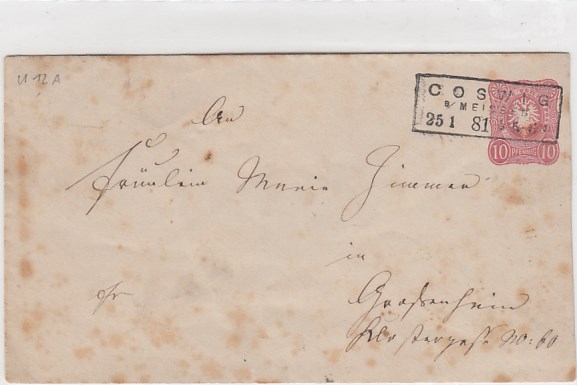 U 12 A
COSWIG
B/ MEISSEN
25 1 81
10 PFENNIG 10
An
Fräulein Marie Zimmer
in
Großenhain
Klostergasse No: 60
fr